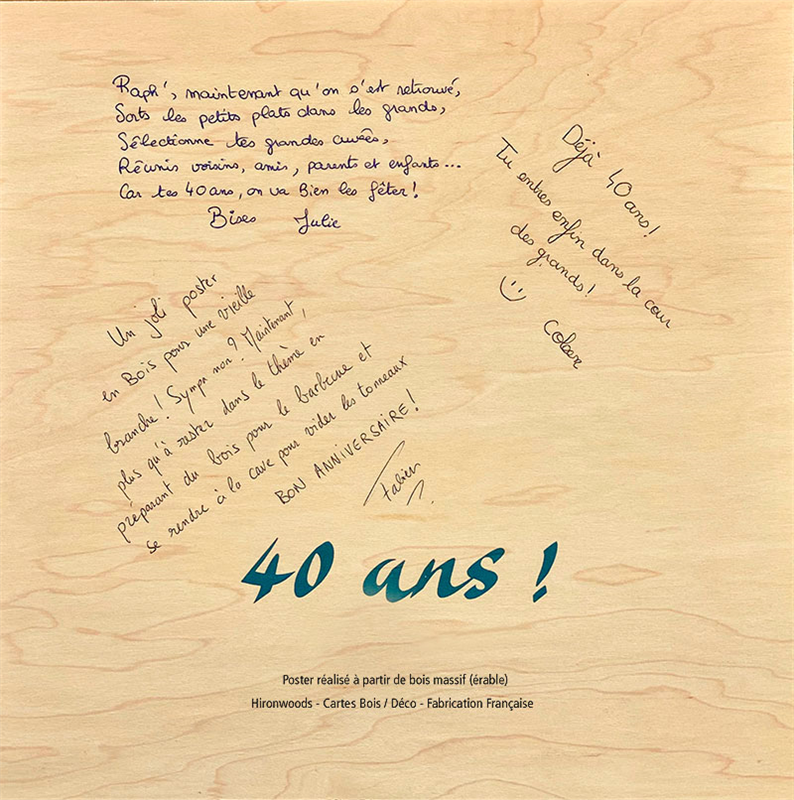 Raph', maintenant qu'on s'est retrouvé,
Sorts les petits plats dans les grands,
Sélectionne tes grandes cuvées,
Réunis voisins, amis, parents et enfants...
Car tes 40 ans, on va Bien les fêter!
Bises Julie
Déjà 40 ans!
Tu entres enfin dans la cour
des grands!
Un joli poster
en Bois pour une vieille
branche! Sympa non? Maintenant,
plus qu'à rester dans le thème en
préparant du bois pour le barbecue et
se rendre à la cave pour vider les tonneaux
BON ANNIVERSAIRE!
Fabien
40 ans !
Poster réalisé à partir de bois massif (érable)
Hironwoods - Cartes Bois / Déco - Fabrication Française